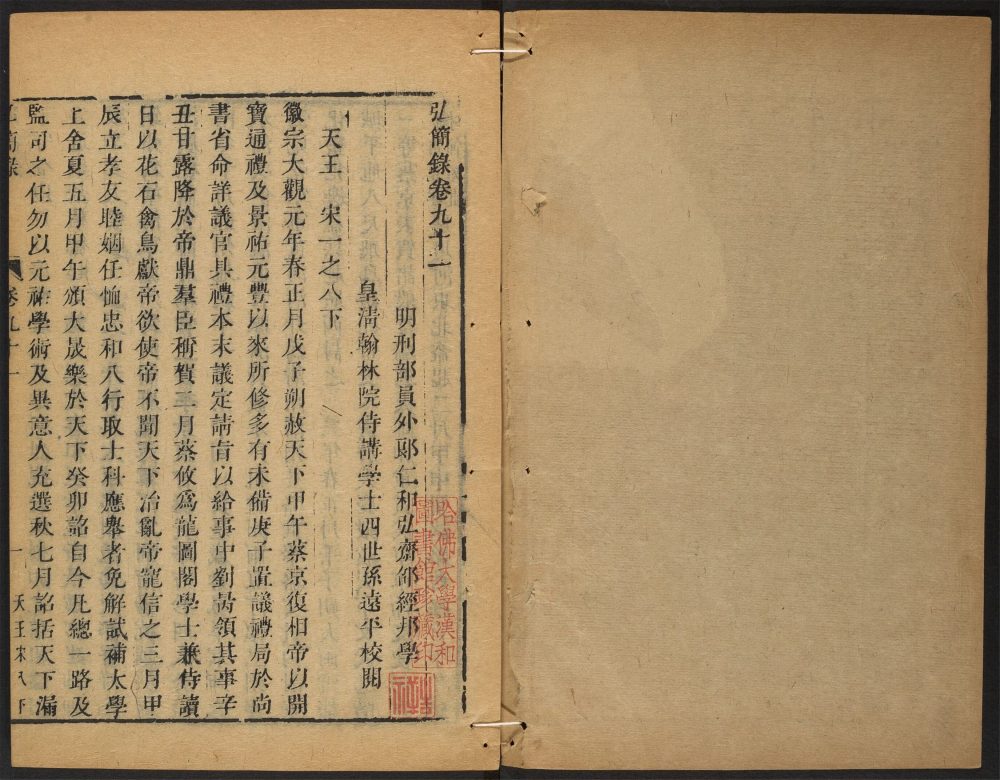 弘簡錄卷九十一
明刑部員外郞仁和弘齋邵經邦學
皇淸翰林院侍講學士四世孫遠平校閱
天王 宋一之八下
徽宗大觀元年春正月戊子朔赦天下甲午蔡京復相帝以開
寶通禮及景祐元豐以來所修多有未備庚子置議禮局於尚
書省命詳議官具禮本末議定請旨以給事中劉昺領其事辛
丑甘露降於帝鼎羣臣稱賀二月蔡攸爲龍圖閣學士兼侍讀
日以花石禽鳥獻帝欲使帝不聞天下治亂帝寵信之三月甲
辰立孝友睦姻任恤忠和八行取士科應舉者免解試補太學
上舍夏五月甲午頒大晟樂於天下癸卯詔自今凡總一路及
監司之任勿以元祐學術及異意人充選秋七月詔括天下漏
弘簡錄 卷九十一 一 天王宋八下
哈佛大學漢和
圖書館珍藏印